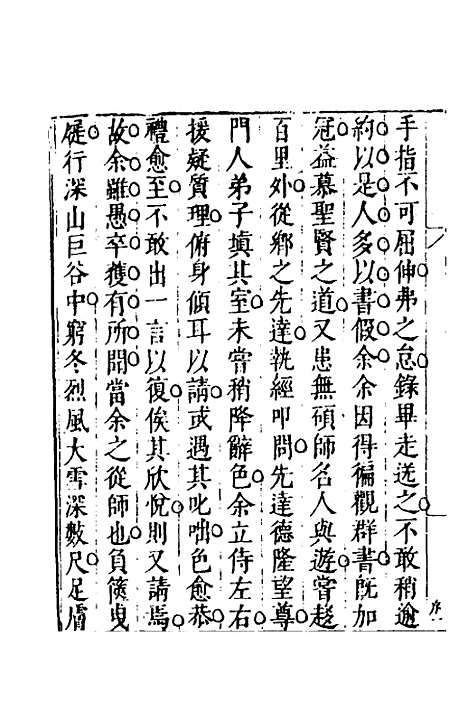 手指不可屈伸弗之怠錄畢走送之不敢稍逾
約以是人多以書假余余因得徧觀群書既加
冠益慕聖賢之道又患無碩師名人與遊嘗趨
百里外從鄉之先達執經叩問先達德隆望尊
門人弟子填其室未嘗稍降辭色余立侍左右
援疑質理俯身傾耳以請或遇其叱咄色愈恭
禮愈至不敢出一言以復俟其欣悅則又請焉
故余雖愚卒獲有所聞當余之從師也負篋曳
屣行深山巨谷中窮冬烈風大雪深數尺足膚
序